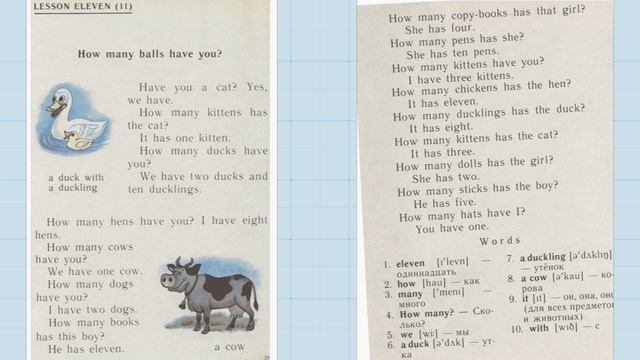 LESSON ELEVEN (11)
How many balls have you?
Have you a cat? Yes,
we have.
How many kittens has
the cat?
It has one kitten.
How many ducks have
you?
We have two ducks and
ten ducklings.
a duck with
a duckling
How many hens have you? I have eight
hens.
How many cows
have you?
We have one cow.
How many dogs
have you?
I have two dogs.
How many books
has this boy?
He has eleven.
a cow
How many copy-books has that girl?
She has four.
How many pens has she?
She has ten pens.
How many kittens have you?
I have three kittens.
How many chickens has the hen?
It has eleven.
How many ducklings has the duck?
It has eight.
How many kittens has the cat?
It has three.
How many dolls has the girl?
She has two.
How many sticks has the boy?
He has five.
How many hats have I?
You have one.
Words
1. eleven [ɪ'levn] —
одиннадцать
2. how [hau] — как
3. many ['menɪ] —
много
4. How many? — Ско-
лько?
5. we [wi:] — мы
6. a duck [ə'dʌk] — ут-
ка
7. a duckling [ə'dʌklɪŋ]
— утёнок
8. a cow [ə'kau] — ко-
рова
9. it [ɪt] — он, она, оно
(для всех предметов
и животных)
10. with [wɪð] — с